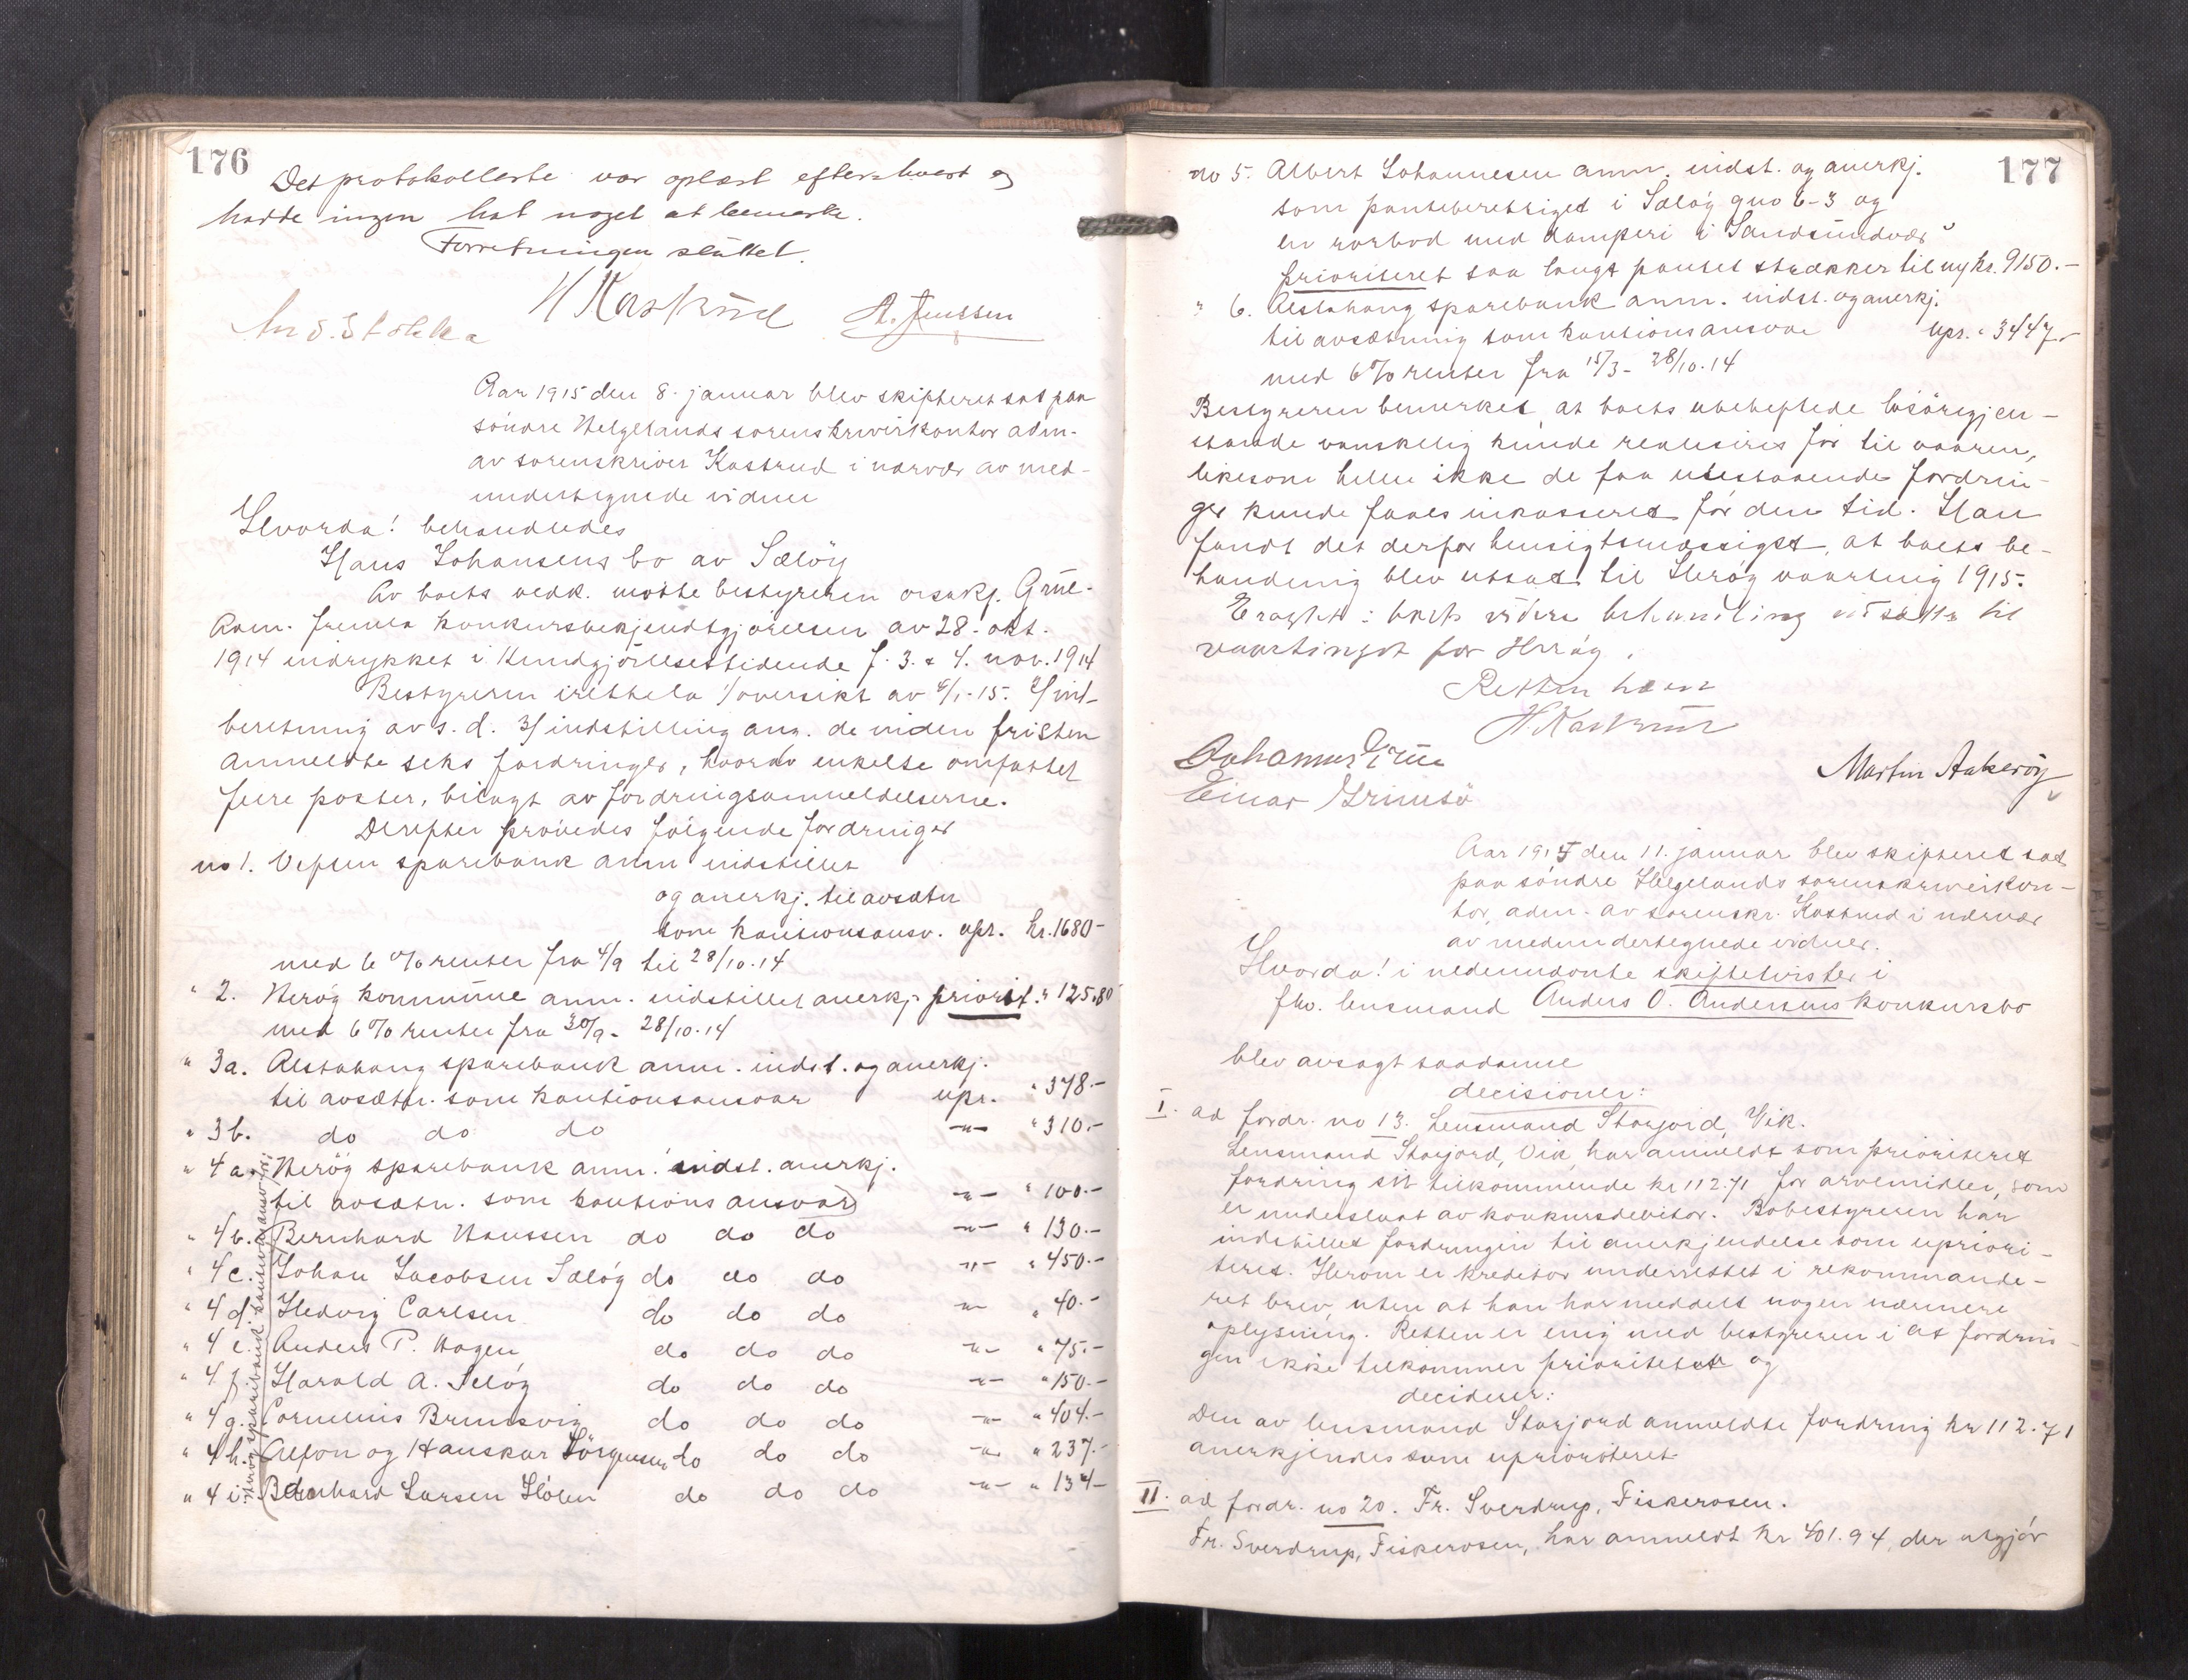 176
Det protokollerte var oplæst efterhvert og
hadde ingen hat noget at bemerke.
Forretningen sluttet.
H Kastrud
A. Jenssen
And. Stokka
Aar 1915 den 8. januar blev skifteret sat paa
söndre Helgelands sorenskriverkontor adm.
av sorenskriver Kastrud i nærvær av med-
undertegnede vidner
Hvorda! behandledes
Hans Johansens bo av Sæløy
Av boets vedk. møtte bestyreren orsakf. Grüe.
Rem. fremla konkursbekjendtgjörelsen av 28. okt.
1914 indrykket i Kundgjörelsestidende f. 3. & 4. nov. 1914
Bestyreren irettela 1/ oversikt av 4/1-15. 2/ ind-
beretning av s. d. 3/ indstilling ang. de inden fristen
anmeldte seks fordringer, hvorav enkelte omfattet
flere poster, bilagt av fordringsanmeldelserne.
Derefter prövedes følgende fordringer
no 1. Vefsen sparebank anm indstillet
og anerkj. til avsætn
som kautionsansv. upr. kr. 1680-
med 6 % renter fra 4/9 til 28/10.14
" 2. Herøy kommune anm. indstillet anerkj. priorit. " 125.80
med 6 % renter fra 30/9 - 28/10.14
" 3a. Alstahaug sparebank anm. indst. og anerkj.
til avsætn. som kautionsansvar upr. " 378.-
" 3b. do do do -"- " 310.-
" 4a. Herøy sparebank anm. indst. anerkj.
til avsætn. som kautionsansvar -"- " 100.-
" 4b. Bernhard Hanssen do do do -"- " 130.-
" 4c. Johan Jacobsen Sæløy do do do -"- " 450.-
" 4d. Hedvig Carlsen do do do -"- " 40.-
" 4e. Anders P. Hagen do do do -"- " 75.-
" 4f. Harald A. Seløy do do do -"- " 150.-
" 4g. Cornelius Brunsvig do do do -"- " 404.-
" 4h. Alfon og Hanskar Jörgensen do do do -"- " 237.-
" 4i. Bernhard Larsen do do do -"- " 134-
177
no 5. Albert Johannesen anm. indst. og anerkj.
som panteberettiget i Sæløy gno 6-3 og
en rorbod med damperi i Sandsundvær
prioriteret saa langt pantet strækker til ny kr. 9150.-
" 6. Alstahaug sparebank anm. indst. og anerkj.
til avsætning som kautionsansvar upr. " 3447.-
med 6 % renter fra 15/3 - 28/10.14
Bestyreren bemerket at boets ubeheftede lösöregjen-
stande vanskelig kunde realiseres för til vaaren,
likesom heller ikke de faa utestaaende fordrin-
ger kunde faaes inkasseret för den tid. Han
fandt det derfor hensigtsmæssigst, at boets be-
handling blev utsat til Herøy vaarting 1915.
Eragtet: boets videre behandling utsættes til
vaartinget for Herøy.
Retten hævet
H. Kastrud
Johannes Grüe
Martin Aakerøy
Einar Grimsö
Aar 1915 den 11. januar blev skifteret sat
paa söndre Helgelands sorenskriverkon-
tor, adm. av sorenskr. Kastrud i nærvær
av medundertegnede vidner.
Hvorda! i nedennævnte skiftetvister i
fhv. lensmand Anders O. Andersens konkursbo
blev avsagt saadanne
decisioner:
I. ad fordr. no 13. Lensmand Storjord, Vik.
Lensmand Storjord, Vik, har anmeldt som prioriteret
fordring sit tilkommende kr 112.71 for arvemidler, som
er underslaat av konkursdebitor. Bobestyreren har
indstillet fordringen til anerkjendelse som upriori-
teret. Herom er kreditor underrettet i rekommande-
ret brev, uten at han har meddelt nogen nærmere
oplysning. Retten er enig med bestyreren i at fordrin-
gen ikke tilkommer prioritet og
deciderer:
Den av lensmand Storjord anmeldte fordring kr 112.71
anerkjendes som uprioriteret.
II. ad fordr. no 20. Fr. Sverdrup, Fiskerosen.
Fr. Sverdrup, Fiskerosen, har anmeldt kr 401.94, der utgjör